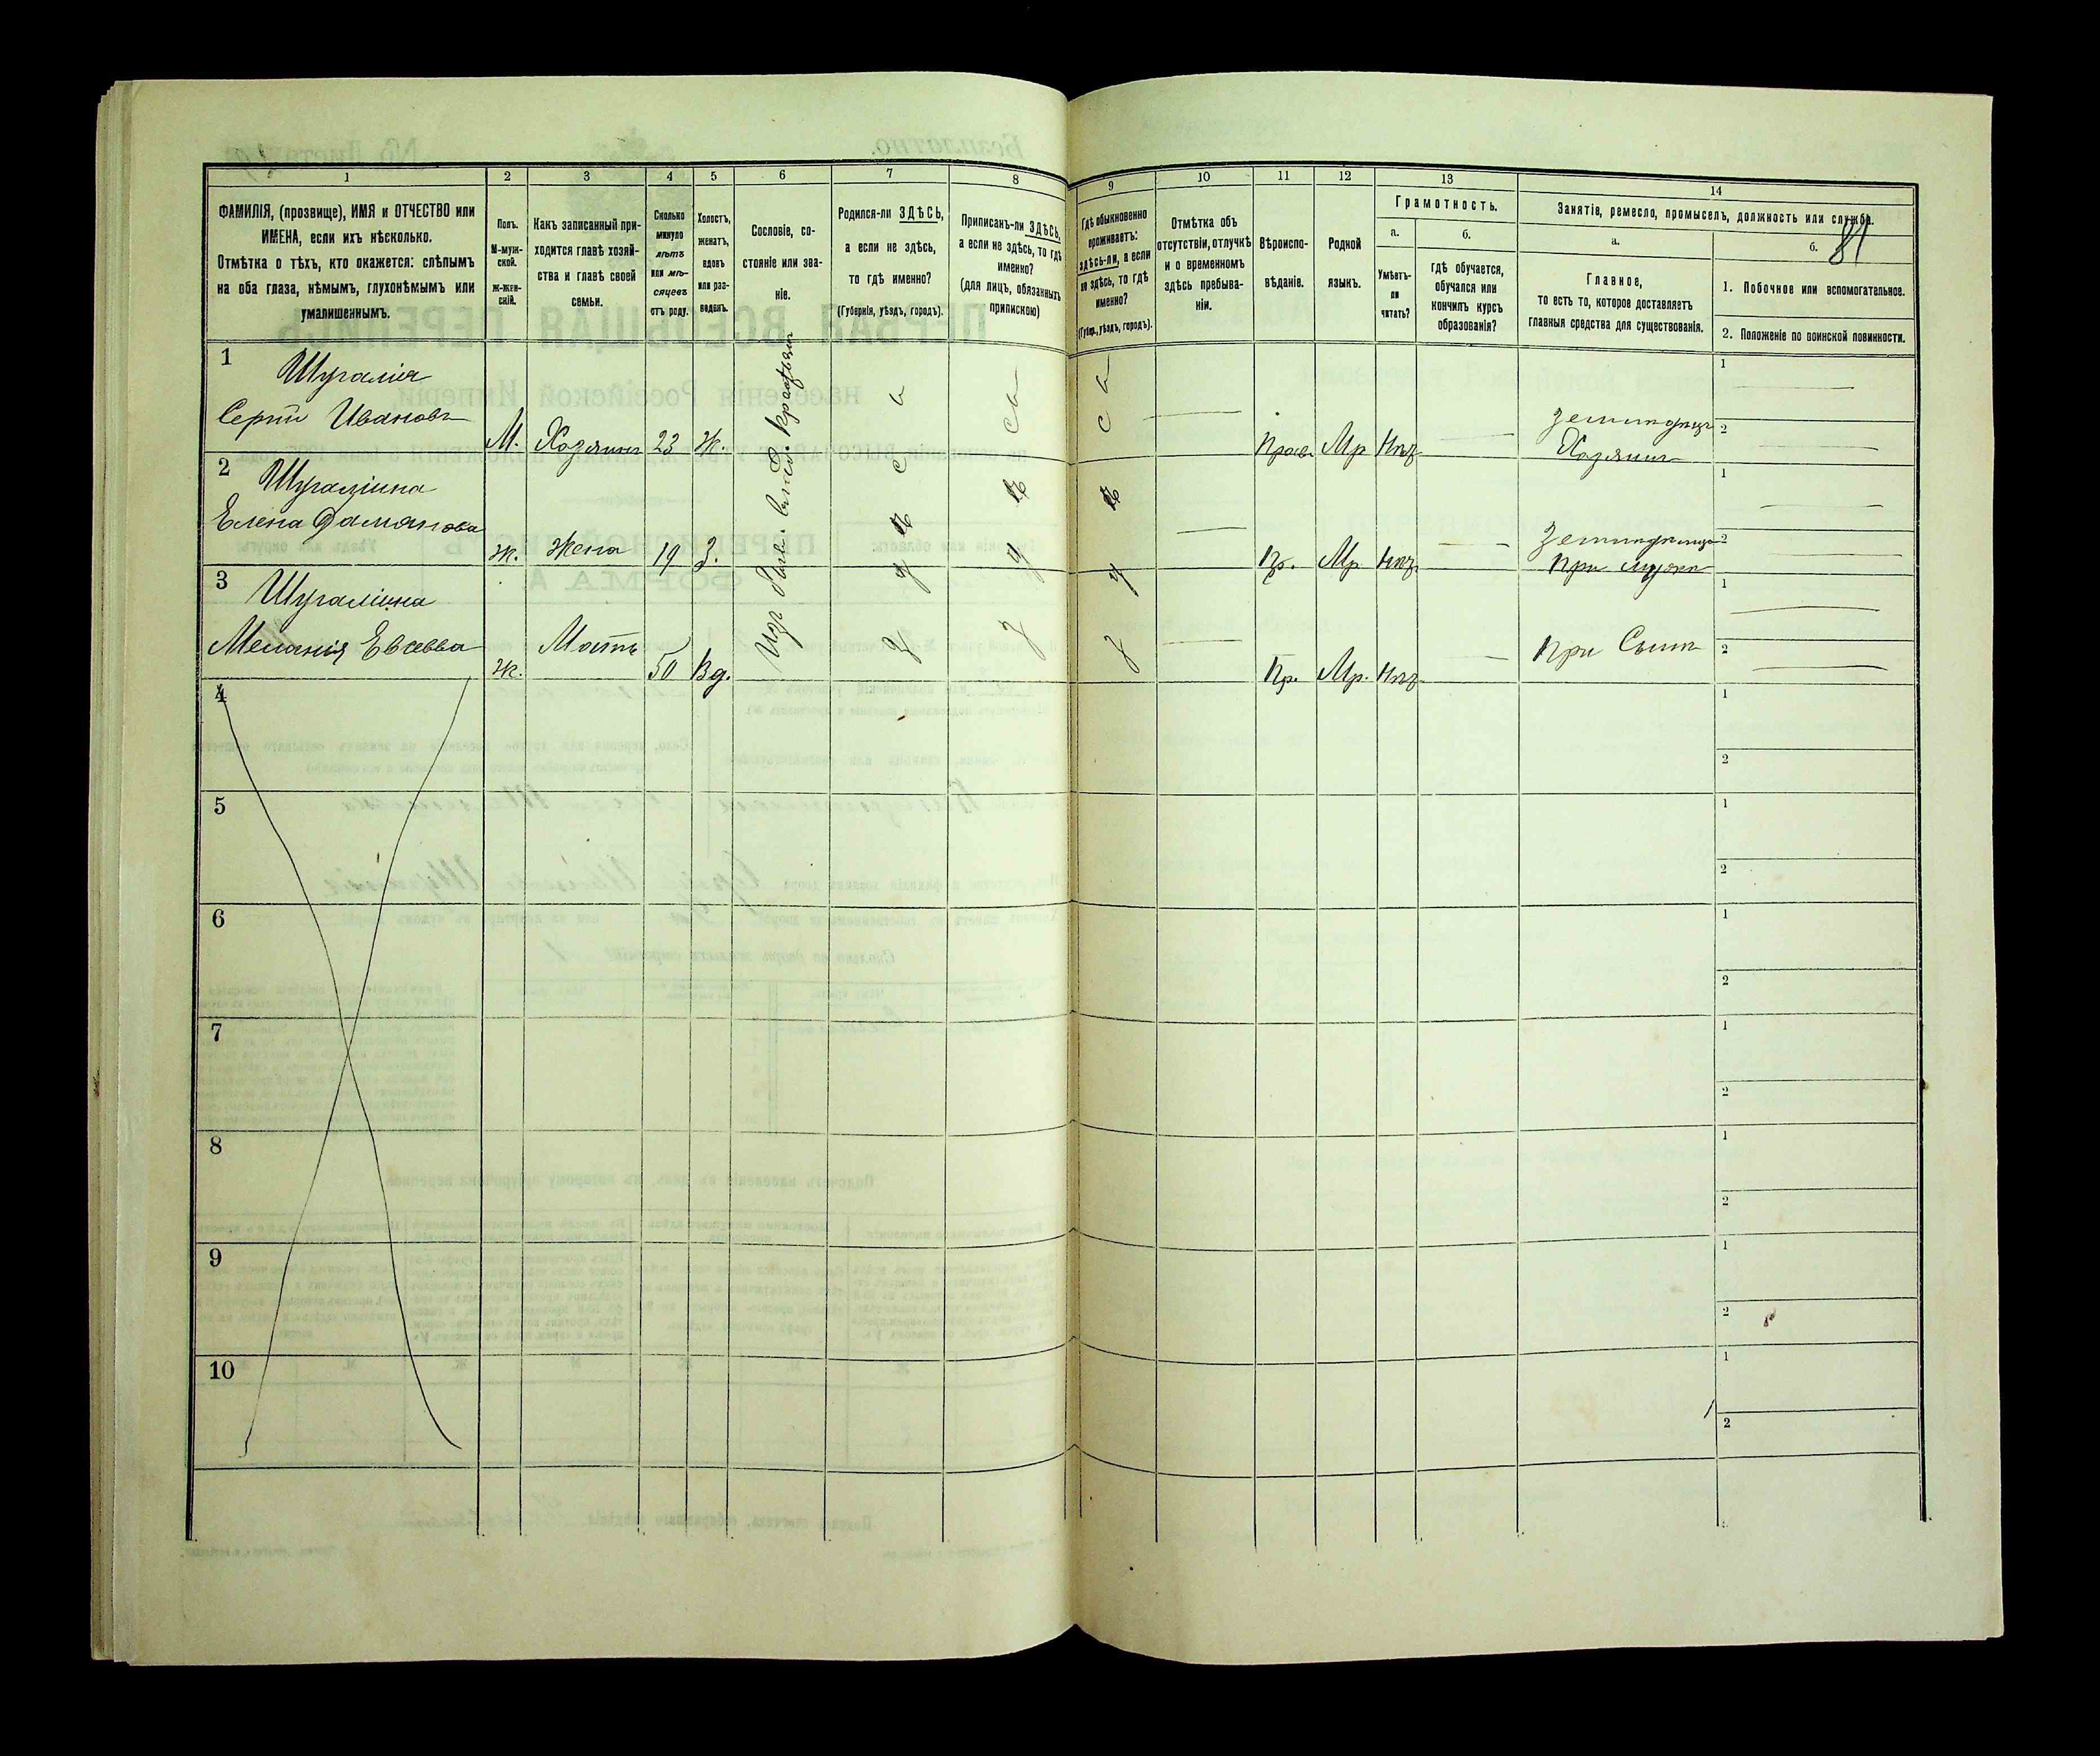 81
1 2 3 4 5 6 7 8 9 10 11 12 13 14
ФАМИЛІЯ, (прозвище), ИМЯ и ОТЧЕСТВО или
ИМЕНА, если ихъ нѣсколько.
Отмѣтка о тѣхъ, кто окажется: слѣпымъ
на оба глаза, нѣмымъ, глухонѣмымъ или
умалишеннымъ.
Полъ.
М-муж-
ской.
ж-жен-
скій.
Какъ записанный при-
ходится главѣ хозяй-
ства и главѣ своей
семьи.
Сколько
минуло
лѣтъ
или мѣ-
сяцевъ
отъ роду.
Холостъ,
женатъ,
вдовъ
или раз-
веденъ.
Сословіе, со-
стояніе или зва-
ніе.
Родился-ли ЗДѢСЬ,
а если не здѣсь,
то гдѣ именно?
(Губернія, уѣздъ, городъ).
Приписанъ-ли ЗДѢСЬ,
а если не здѣсь, то гдѣ
именно?
(для лицъ, обязанныхъ
припискою)
Гдѣ обыкновенно
проживаетъ:
здѣсь-ли, а если
не здѣсь, то гдѣ
именно?
(Губерн., уѣздъ, городъ).
Отмѣтка объ
отсутствіи, отлучкѣ
и о временномъ
здѣсь пребыва-
ніи.
Вѣроиспо-
вѣданіе.
Родной
языкъ.
Грамотность.
а.
Умѣетъ-
ли
читать?
б.
гдѣ обучается,
обучался или
кончилъ курсъ
образованія?
Занятіе, ремесло, промыселъ, должность или служба.
а.
Главное,
то есть то, которое доставляетъ
главныя средства для существованія.
б.
1. Побочное или вспомогательное.
2. Положеніе по воинской повинности.
1 Шугалія
Сергій Ивановъ М. Хозяинъ 23 Ж. здѣсь здѣсь здѣсь Прав. Мр Нѣтъ Хозяинъ 1 2
2
Елена Дамянова ж. Жена 19 З. Пр. Мр Нѣтъ При мужѣ 1 2
3
Меланія Евсеева ж. Мать 50 Вд. Пр. Мр. Нѣтъ При Сынѣ 1 2
4 1 2
5 1 2
6 1 2
7 1 2
8 1 2
9 1 2
10 1 2